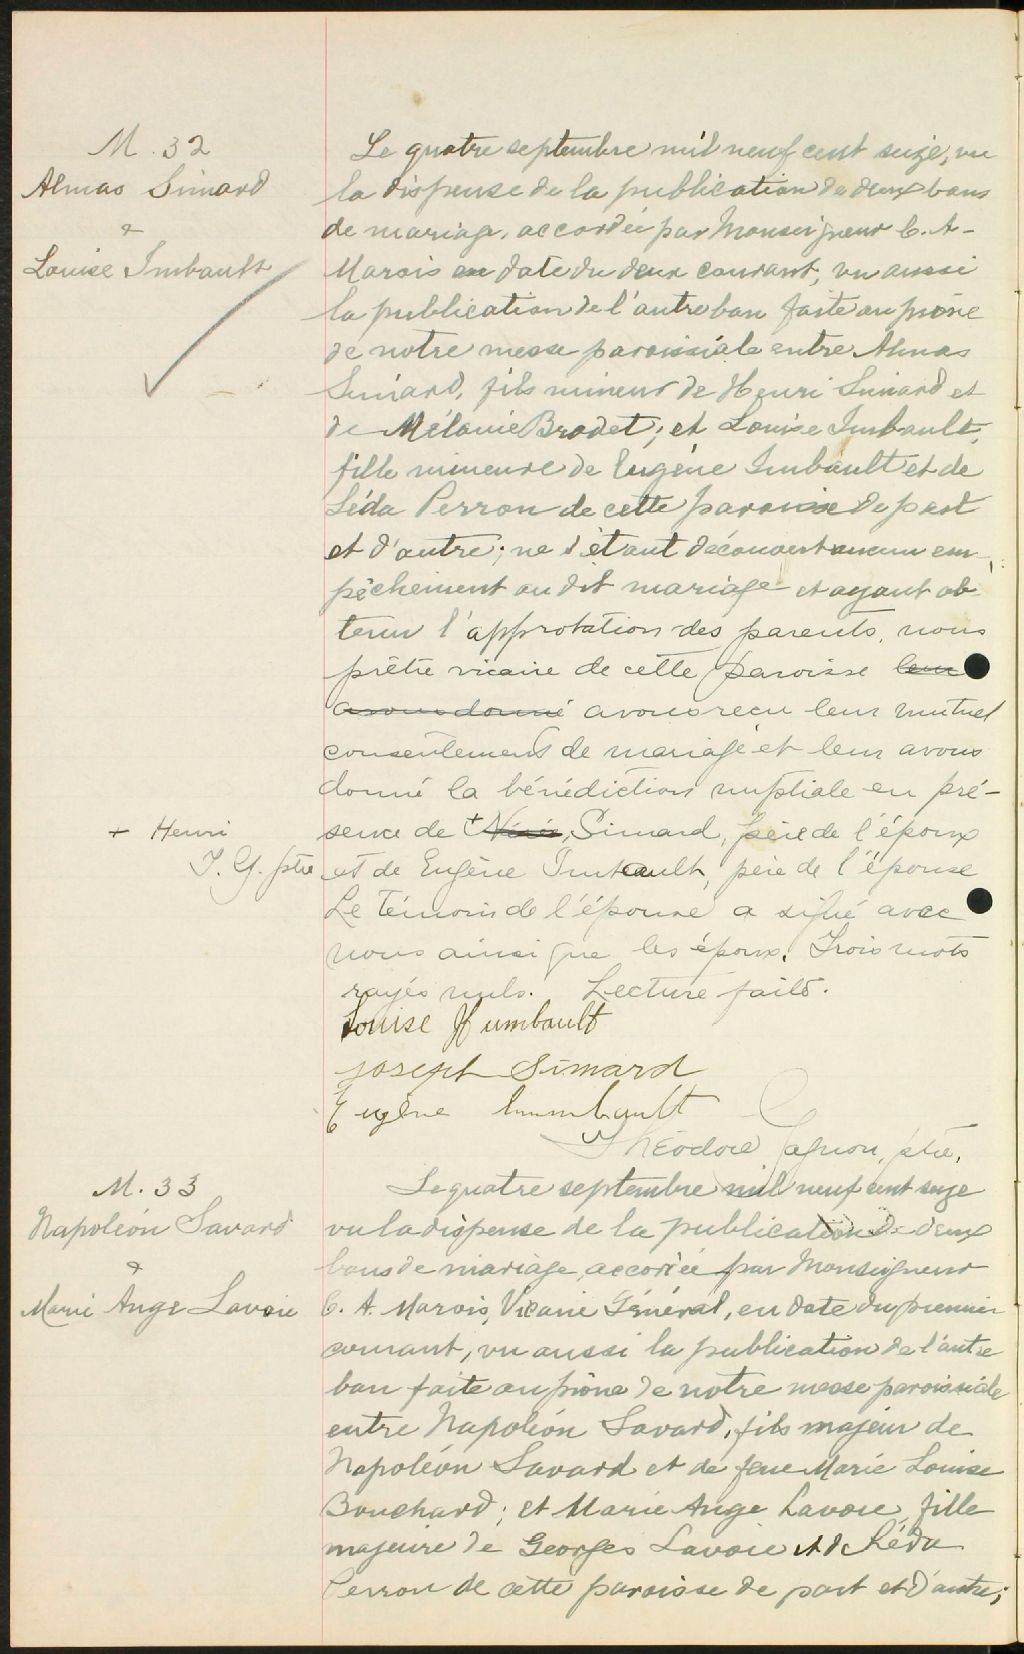 M. 32
Almas Simard
&
Louise Imbault
Le quatre septembre mil neuf cent seize, vu
la dispense de la publication de deux bans
de mariage, accordée par Monseigneur C. A-
Marois en date du deux courant, vu aussi
la publication de l'autre ban faite au prône
de notre messe paroissiale entre Almas
Simard, fils mineur de Henri Simard et
de Mélanie Brodet; et Louise Imbault,
fille mineure de Eugène Imbault et de
Léda Perron de cette paroisse de part
et d'autre; ne s'étant découvert aucun em-
pêchement au dit mariage et ayant ob
tenu l'approbation des parents, nous
prêtre vicaire de cette paroisse leur
avons donné avons reçu leur mutuel
consentement de mariage et leur avons
donné la bénédiction nuptiale en pré-
sence de + Simard, père de l'époux
+ Henri
T. G. ptre
et de Eugène Imbault, père de l'épouse
Le témoin de l'épouse a signé avec
nous ainsi que les époux. Trois mots
rayés nuls. Lecture faite.
Louise Humbault
Joseph Simard
Eugène Imumbault
Théodore Gagnon, ptre.
M. 33
Napoléon Savard
&
Marie Ange Lavoie
Le quatre septembre mil neuf cent seize
vu la dispense de la publication de deux
bans de mariage accordée par Monseigneur
C. A. Marois, Vicaire Général, en date du premier
courant, vu aussi la publication de l'autre
ban faite au prône de notre messe paroissiale
entre Napoléon Savard, fils majeur de
Napoléon Savard et de feue Marie Louise
Bouchard; et Marie Ange Lavoie, fille
majeure de Georges Lavoie et de Léda
Perron de cette paroisse de part et d'autre;